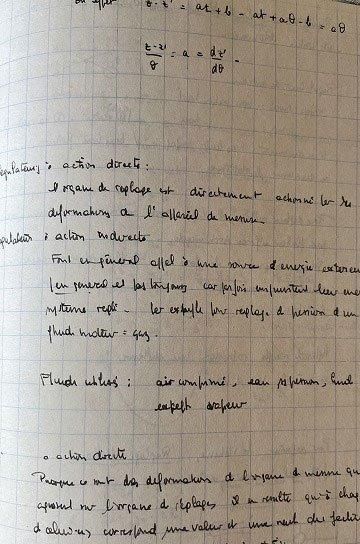 en effet z - z' = at + b - at + aθ - b = aθ
z - z' / θ = a = dz' / dθ .
à action directe :
l'organe de réglage est directement actionné par les
déformations de l'appareil de mesure
à action indirecte
Font en général appel à une source d'énergie
en général et pas toujours car parfois
système . Par exemple pour réglage de pression d'un
fluide moteur = gaz.
Fluide utilisé : air comprimé, eau s/pression, huile
except vapeur
à action directe
Puisque ce sont des déformations de l'organe de mesure qui
agissent sur l'organe de réglages il en résulte qu'à chaque
correspond une valeur et une seule du